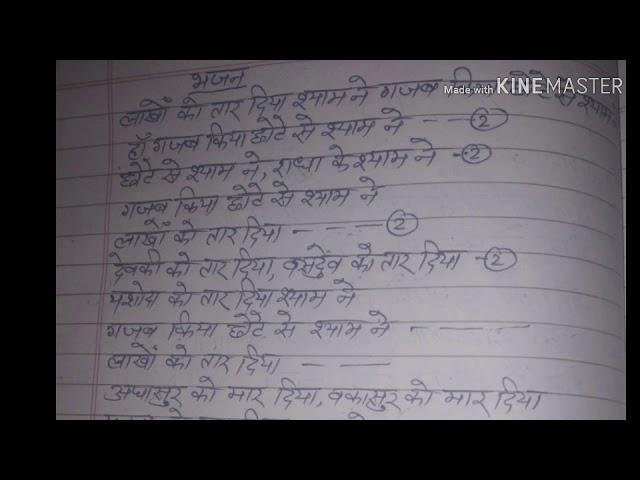 Made with KINEMASTER
भजन
लाखों को तार दिया श्याम ने गजब किया छोटे से श्याम
हाँ गजब किया छोटे से श्याम ने - — ②
छोटे से श्याम ने, राधा के श्याम ने -②
गजब किया छोटे से श्याम ने
लाखों को तार दिया - — — ②
देवकी को तार दिया, वसुदेव को तार दिया -②
यशोदा को तार दिया श्याम ने
गजब किया छोटे से श्याम ने - — — —
लाखों को तार दिया — —
अघासुर को मार दिया, बकासुर को मार दिया